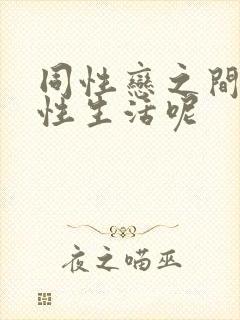 同性戀之間
性生活呢
夜之喵巫